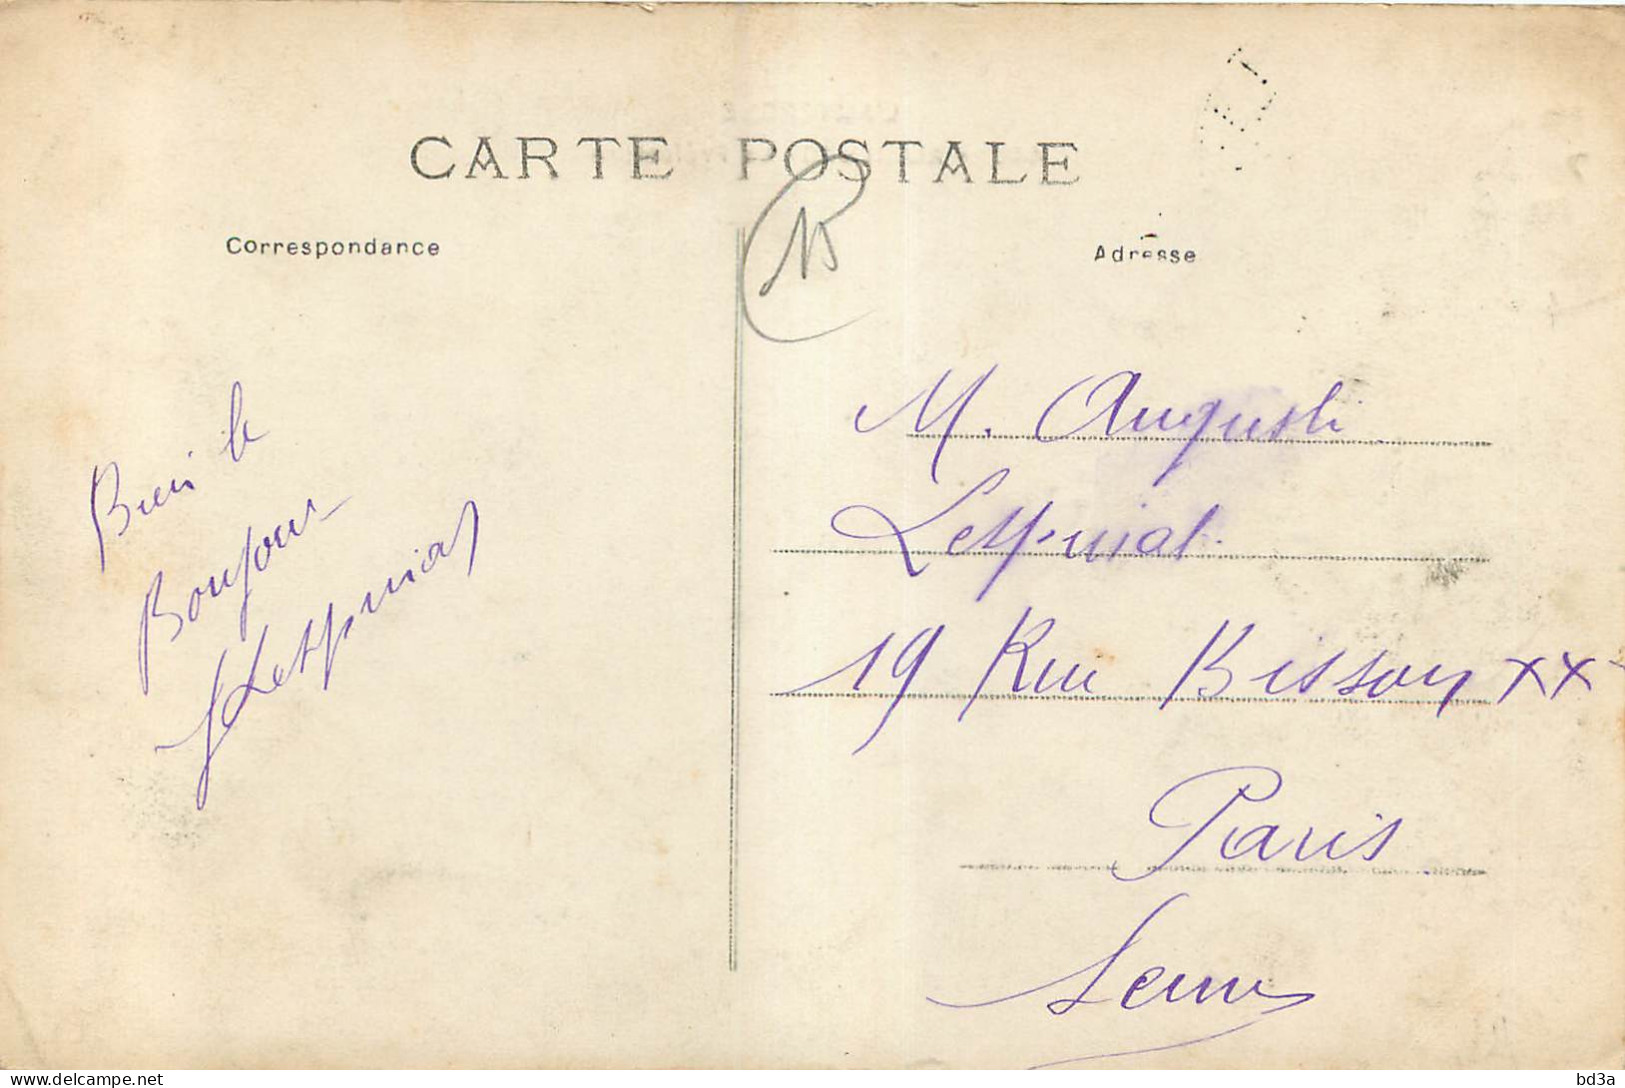 CARTE POSTALE
Correspondance
Adresse
Bien le
Bonjour
Lespinas
M. Auguste
Lespinas
19 Rue Bisson XX
Paris
Seine
delcampe.net
bd3a